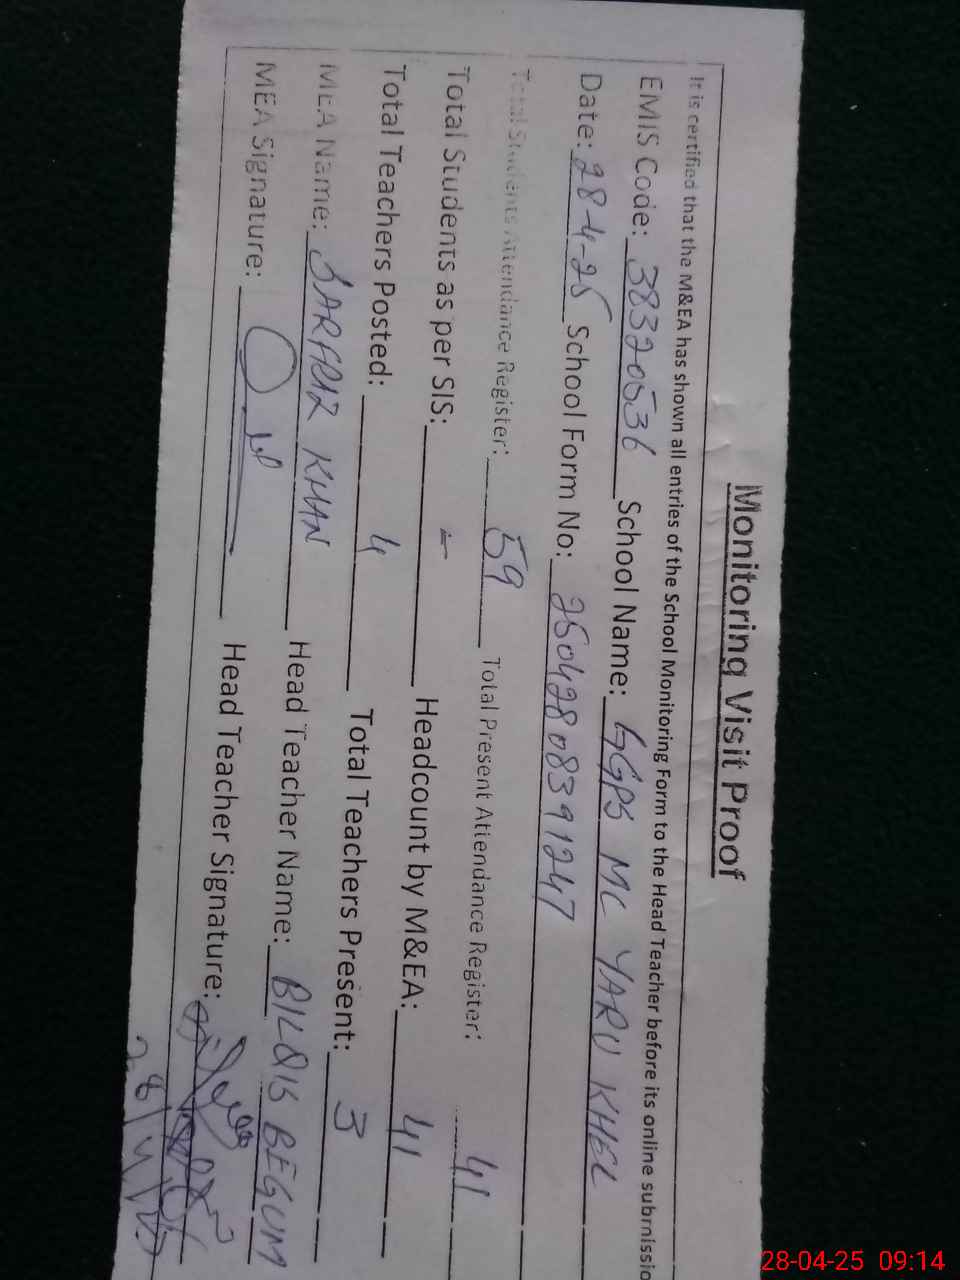 Monitoring Visit Proof
It is certified that the M&EA has shown all entries of the School Monitoring Form to the Head Teacher before its online submissio
EMIS Code: 38320536 School Name: GGPS MC YARU KHEL
Date: 28-4-25 School Form No: 25042808391247
Total Students Attendance Register: 59 Total Present Attendance Register: 41
Total Students as per SIS: - Headcount by M&EA: 41
Total Teachers Posted: 4 Total Teachers Present: 3
MEA Name: SARFRAZ KHAN Head Teacher Name: BILQIS BEGUM
MEA Signature: Head Teacher Signature:
28/4/25
28-04-25 09:14